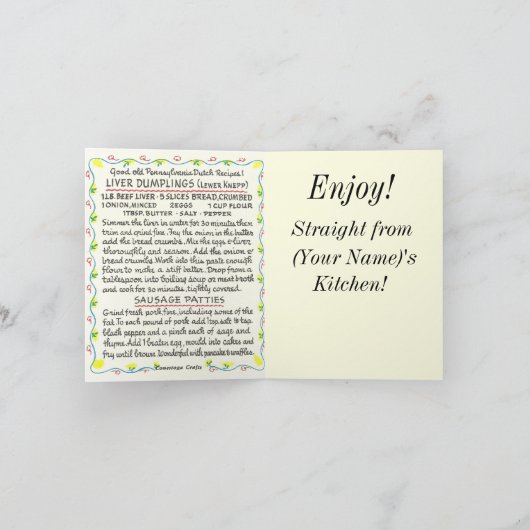 Good old Pennsylvania Dutch Recipes!
LIVER DUMPLINGS (LEWER KNEPP)
1 LB. BEEF LIVER · 5 SLICES BREAD, CRUMBED
1 ONION, MINCED 2 EGGS 1 CUP FLOUR
1 TBSP. BUTTER - SALT - PEPPER
Simmer the liver in water for 30 minutes then
trim and grind fine. Fry the onion in the butter
add the bread crumbs. Mix the eggs & liver
thoroughly and season. Add the onion &
bread crumbs. Work into this paste enough
flour to make a stiff batter. Drop from a
tablespoon into boiling soup or meat broth
and cook for 30 minutes, tightly covered.
SAUSAGE PATTIES
Grind fresh pork fine, including some of the
fat. To each pound of pork add 1 tsp. salt ½ tsp.
black pepper and a pinch each of sage and
thyme. Add 1 beaten egg, mould into cakes and
fry until brown. Wonderful with pancakes & waffles.
Conestoga Crafts
Enjoy!
Straight from
(Your Name)'s
Kitchen!